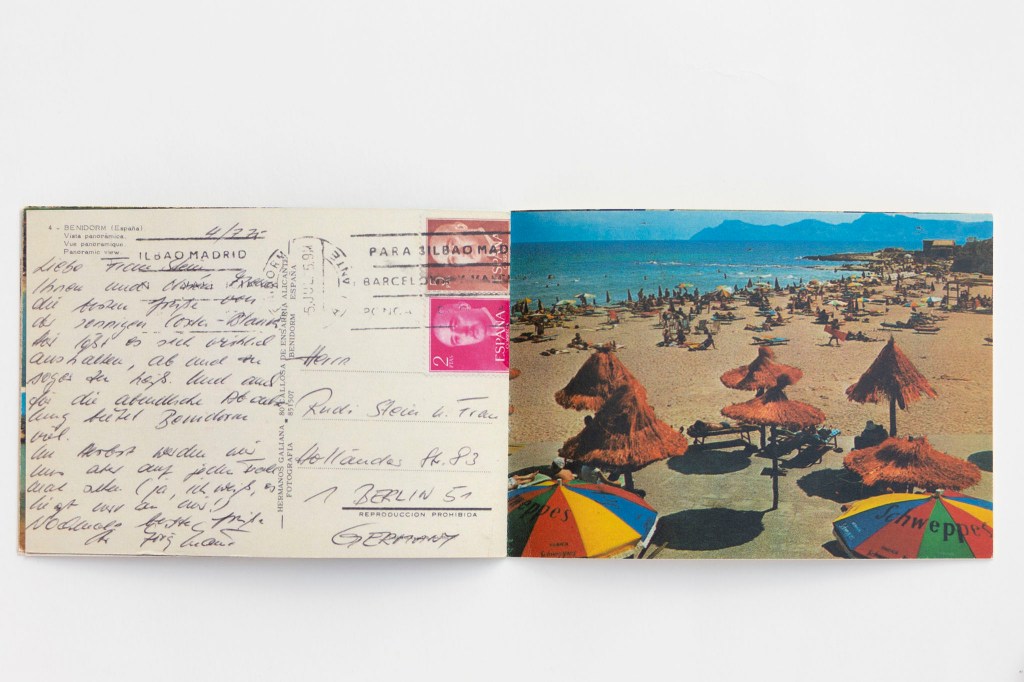 4 - BENIDORM (España)
Vista panorámica.
Vue panoramique.
Panoramic view
ILBAO MADRID
Liebe Frau Stein
Ihnen und
die besten Grüße von
der sonnigen Costa-Blanca
läßt es sich wirklich
aushalten, ab und zu
sogar zu heiß. Und auch
für die abendliche
bietet Benidorm
viel.
Im Herbst werden wir
uns aber auf jeden Fall
mal sehen (ja, ich weiß, es
liegt nur an mir!)
Nochmals beste Grüße
Ihr
HERMANOS GALIANA
FOTOGRAFIA
80 CALLOSA DE ENSARRIA ALICANTE
BENIDORM ESPAÑA
PARA BILBAO MAD
BARCELONA
ESPAÑA
2
PTAS
Herrn
Rudi Stein u. Frau
Hollander Str. 83
1 BERLIN 51
REPRODUCCION PROHIBIDA
GERMANY
Schweppes